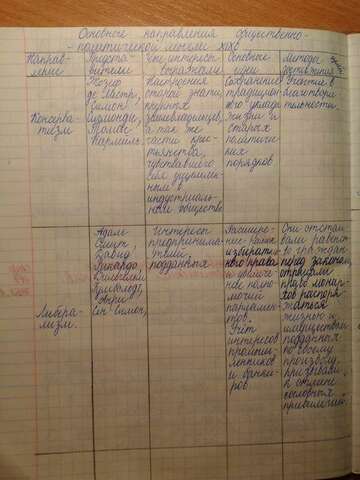 Основные направления общественно-
-политической мысли XIX в
Направ-
ление
Предста-
вители
Чьи интересы
выражали
Основные
идеи
Методы
достижения
Консерва-
тизм
Жозеф
де Местр,
Симон
Сисмонди,
Томас
Карлейль.
Настроения
старой знати,
крупных
землевладельцев,
а так же
части кре-
стьянства,
чувствовавшего
себя ущемлен-
ным в
индустриальн-
ном обществе
Сохранение
традицион-
ного уклада
жизни и
старых
политичес-
ких
порядков
Участие в
благотвори-
тельности.
Либера-
лизм.
Адам
Смит,
Давид
Рикардо,
Вильгельм
Гумбольдт,
Анри
Сен-Симон,
Интересы
предпринима-
телей,
подданных
Расшире-
ние
избиратель-
ного права
и увеличе-
ние полно-
мочий
парламен-
тов.
Учёт
интересов
промыш-
ленников
и банки-
ров
Они отстаи-
вали равенст-
во граждан
перед законом,
отрицали
право монар-
хов распоря-
жаться
жизнью и
имуществом
подданных
по своему
произволу,
призывали
к отмене
сословных
привилегий.